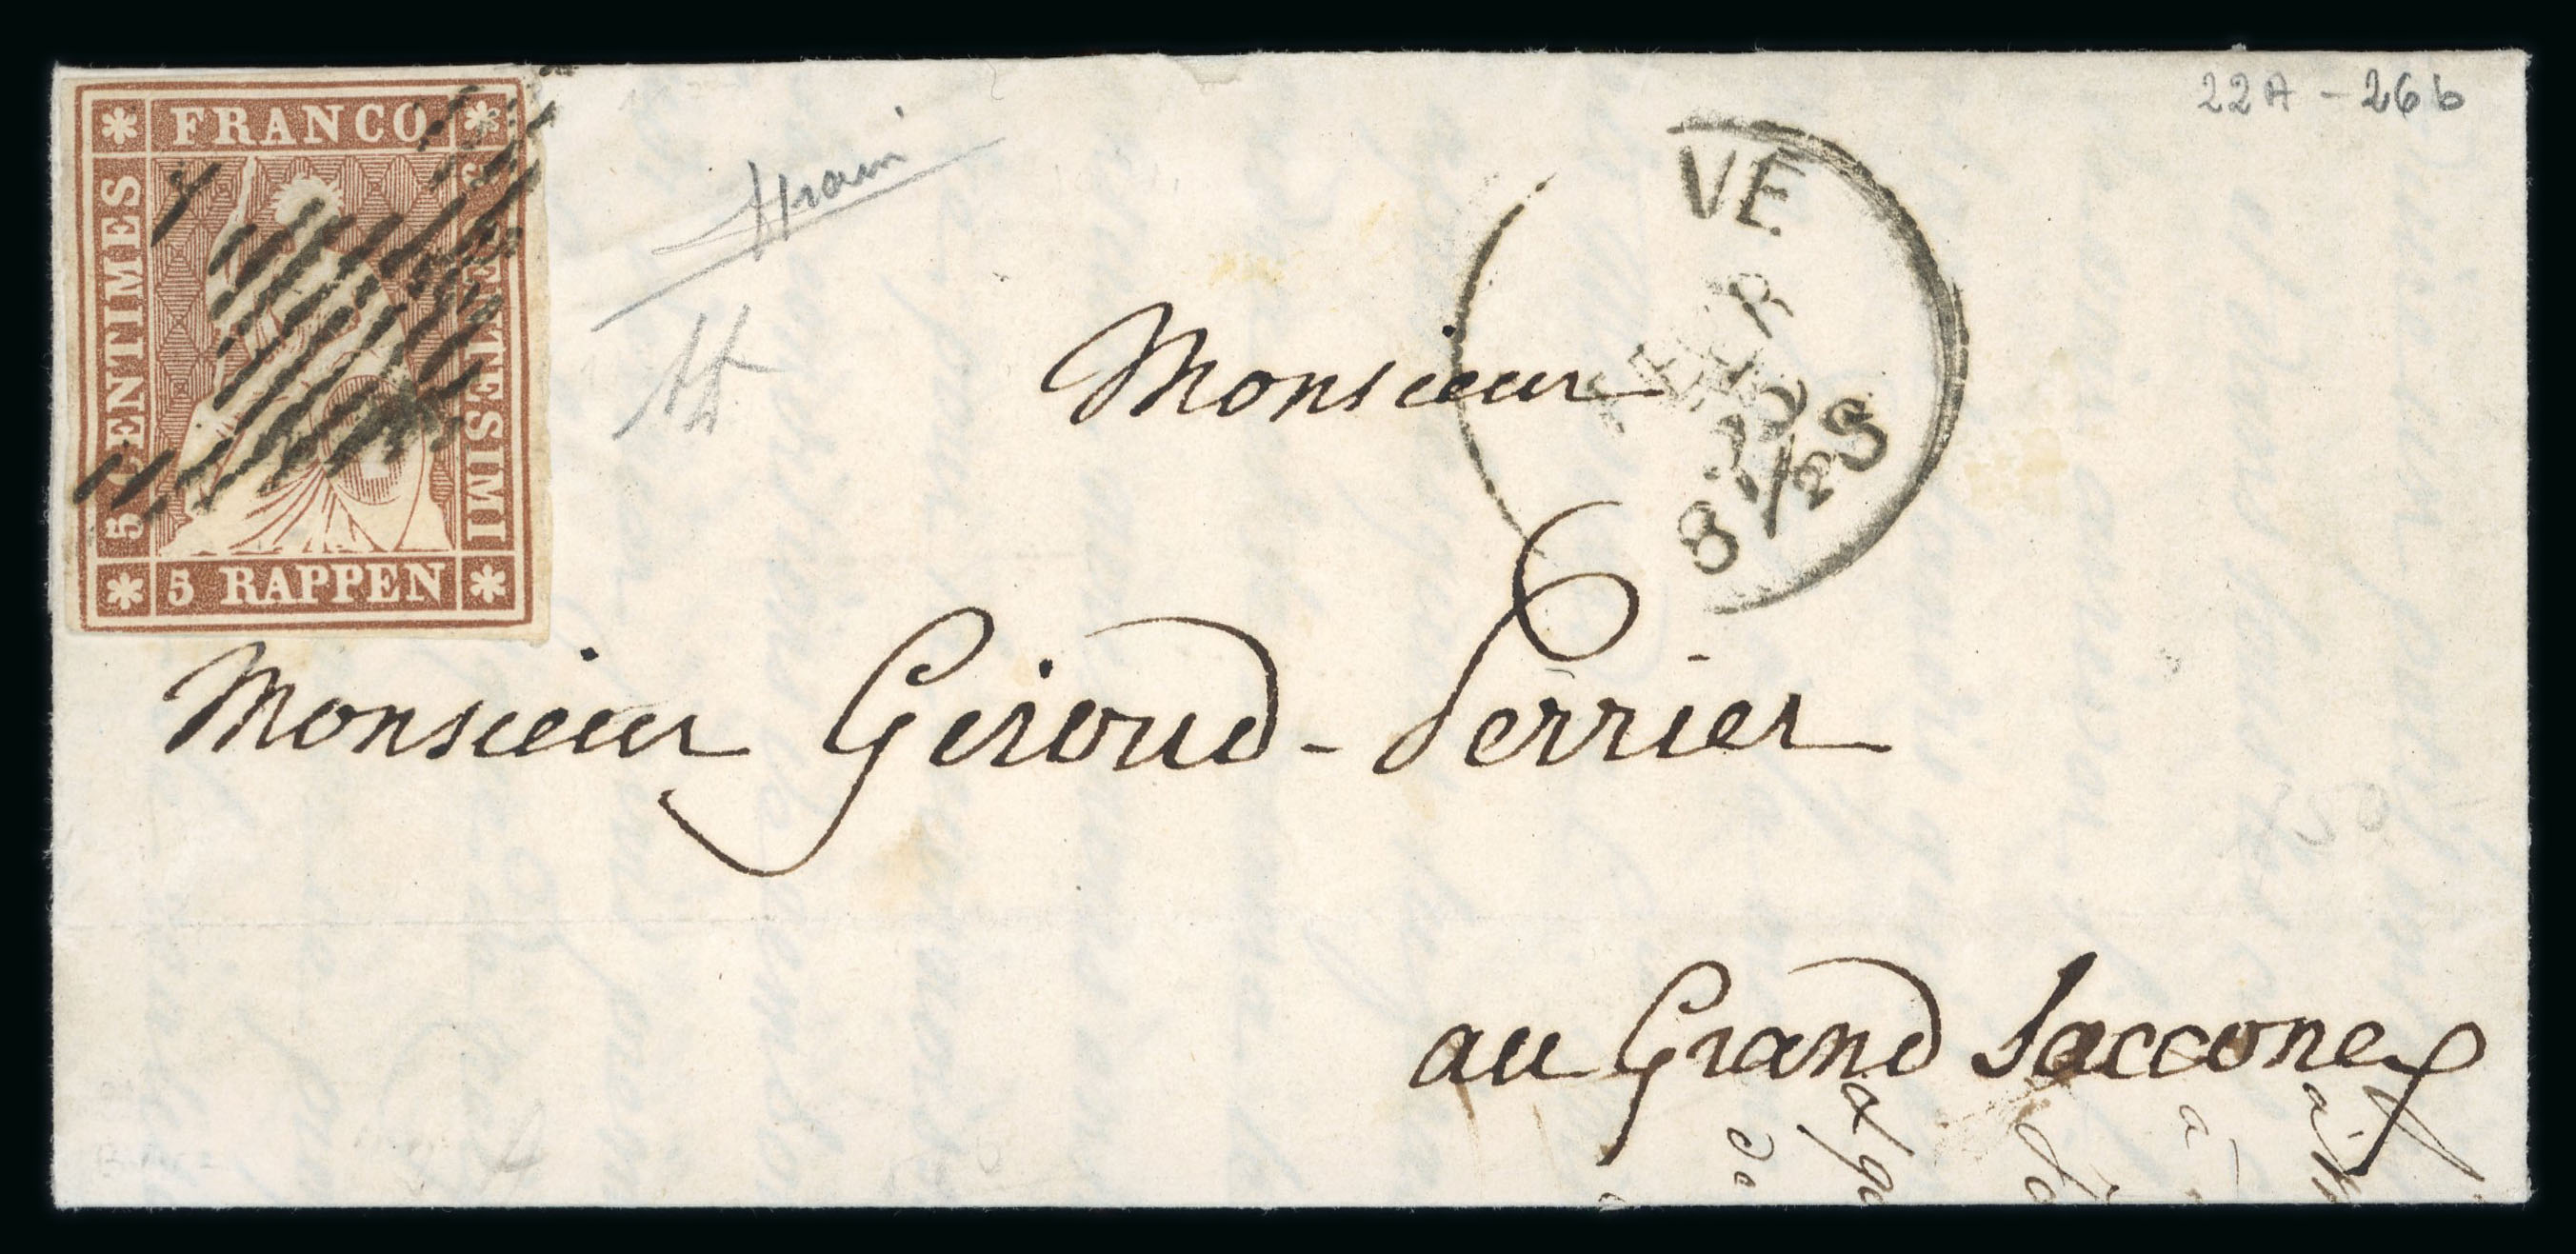 FRANCO
5 CENTIMES
CENTESIMI
5 RAPPEN
22A - 26b
VE
FEVR
8 1/2 S
Monsieur
Monsieur Giroud-Perrier
au Grand Sacconex